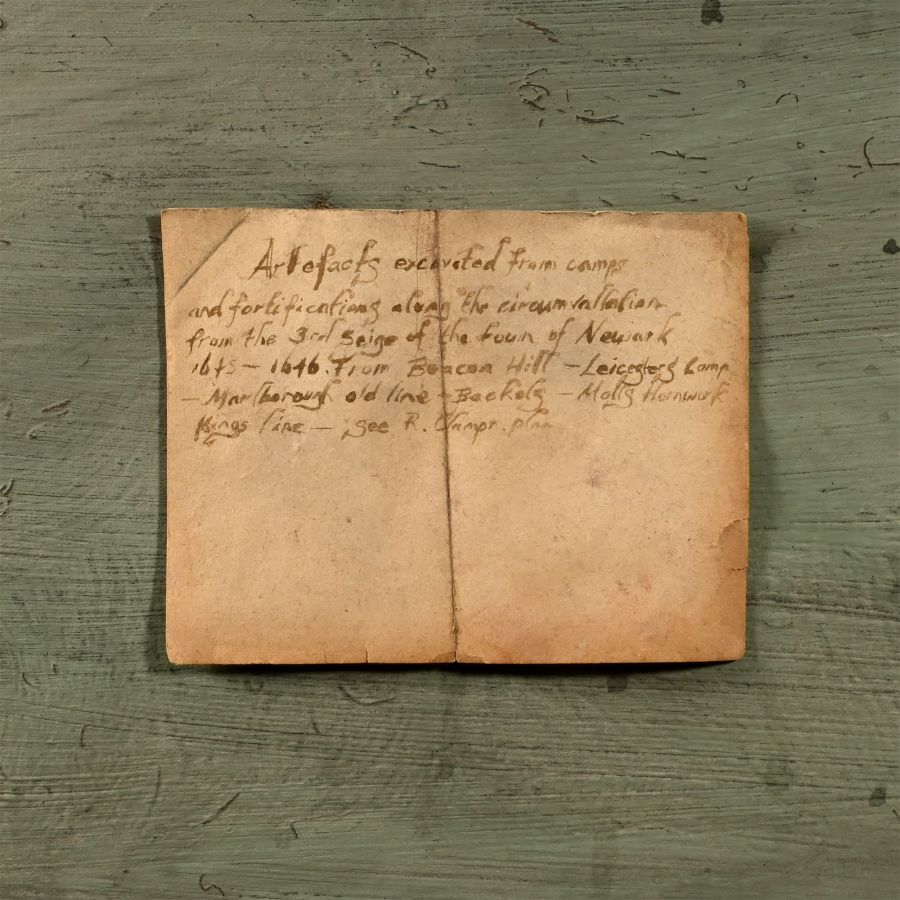 Artefacts excavated from camps
and fortifications along the circumvallation
from the 3rd Seige of the town of Newark
1645 - 1646. From Beacon Hill -
- Marlborough old line - - Hornwork
Kings line - See R. plan